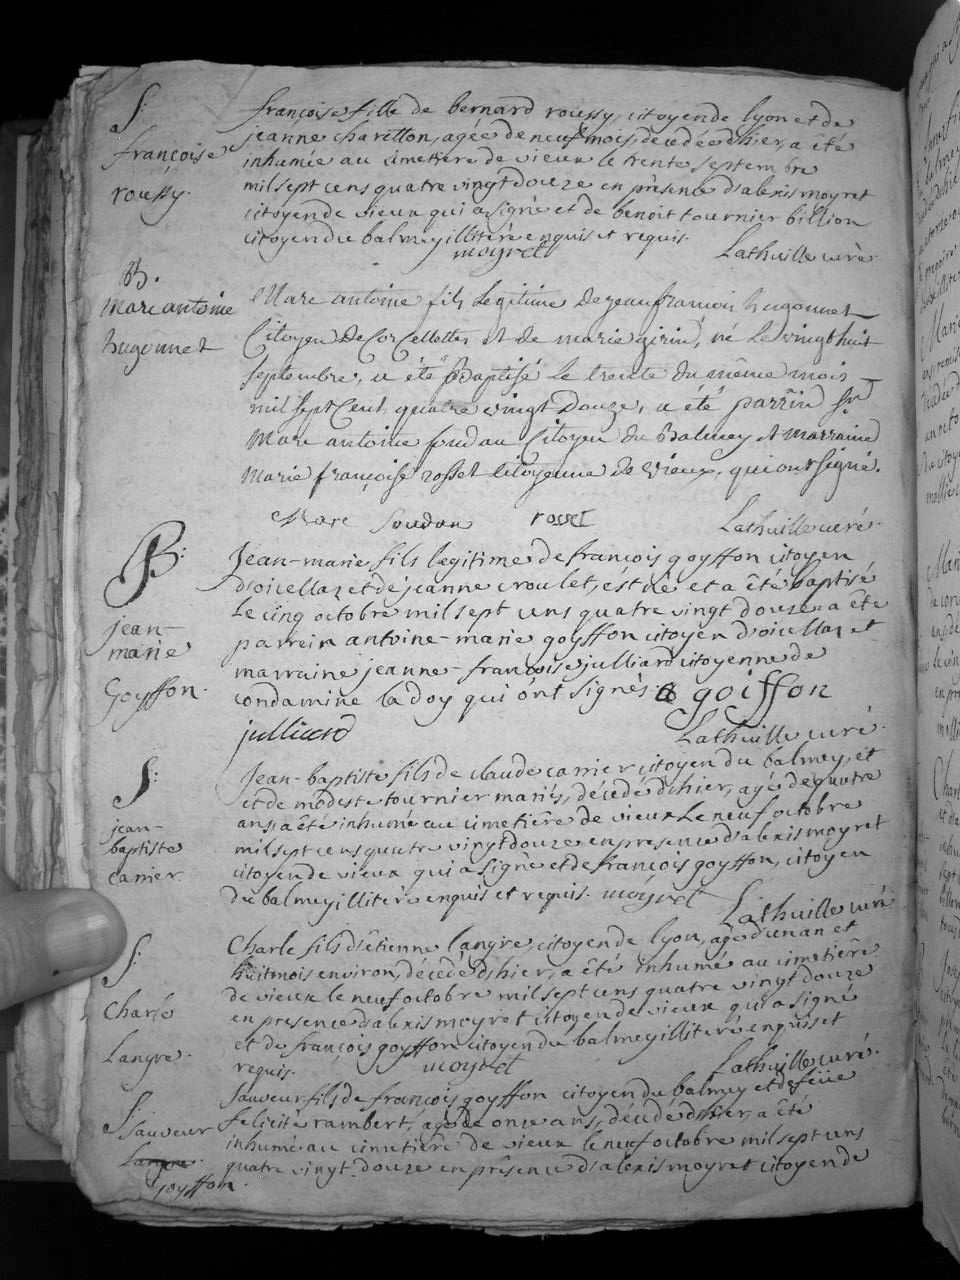 S.
françoise
roussy.
françoise fille de bernard roussy, citoyen de lyon et de
jeanne charetton, agée de neuf mois, décédée d'hier, a été
inhumée au cimetière de vieux le trente septembre
mil sept cens quatre vingt douze en présence d'alexis moyret
citoyen de vieux qui a signé et de benoit tournier billion
citoyen du balmey illiteré enquis et requis.
moyret Lathuille curé.
B.
marc antoine
hugonnet
Marc antoine fils legitime de jean françois hugonnet
Citoyen de Corcellottes et de marie girin, né le vingt huit
septembre, a été Baptisé le trente du même mois
mil sept Cent quatre vingt Douze, a été parrin Sr.
Marc antoine soudan Citoyen du Balmey et marraine
Marie françoise rosset Citoyenne de Vieux, qui ont signé.
Marc Soudan rosset Lathuille curé.
B.
jean-
marie
Goyffon.
Jean-marie fils legitime de françois goyffon citoyen
d'oicellaz et de jeanne croulet, est né et a été baptisé
le cinq octobre mil sept cens quatre vingt douze. a été
parrein antoine-marie goyffon citoyen d'oicellaz et
marraine jeanne-françoise julliard citoyenne de
condamine la doy qui ont signés. a goiffon
julliard Lathuille curé.
S.
jean-
baptiste
carrier.
Jean-baptiste fils de claude carrier citoyen du balmey, et
et de modeste tournier mariés, décédé d'hier, agé de quatre
ans, a été inhumé au cimetière de vieux le neuf octobre
mil sept cens quatre vingt douze en presence d'alexis moyret
citoyen de vieux qui a signé et de françois goyffon, citoyen
du balmey illiteré enquis et requis. moyret
Lathuille curé
S.
Charle
Langre.
Charle fils d'étienne langre citoyen de lyon, agé d'un an et
huit mois environ, décédé d'hier, a été inhumé au cimetière
de vieux le neuf octobre mil sept cens quatre vingt douze
en presence d'alexis moyret citoyen de vieux qui a signé
et de françois goyffon citoyen du balmey illiteré enquis et
requis. moyret Lathuille curé.
S.
Sauveur
Langre.
goyffon.
Sauveur fils de françois goyffon citoyen du balmey et de feüe
felicité rambert, agé de onze ans, décédé d'hier, a été
inhumé au cimetière de vieux le neuf octobre mil sept cens
quatre vingt douze en présence d'alexis moyret citoyen de